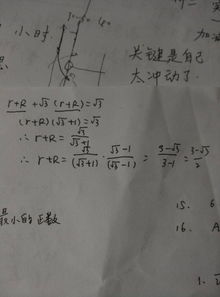 小时.
关键是自己
太冲动了.
r+R +√3 (r+R)=√3
(r+R)(√3+1)=√3
∴ r+R = √3/(√3+1)
∴ r+R = √3/(√3+1) · √3-1/(√3-1) = 3-√3/3-1 = 3-√3/2
最小的正数
15. 6
16. A
1.